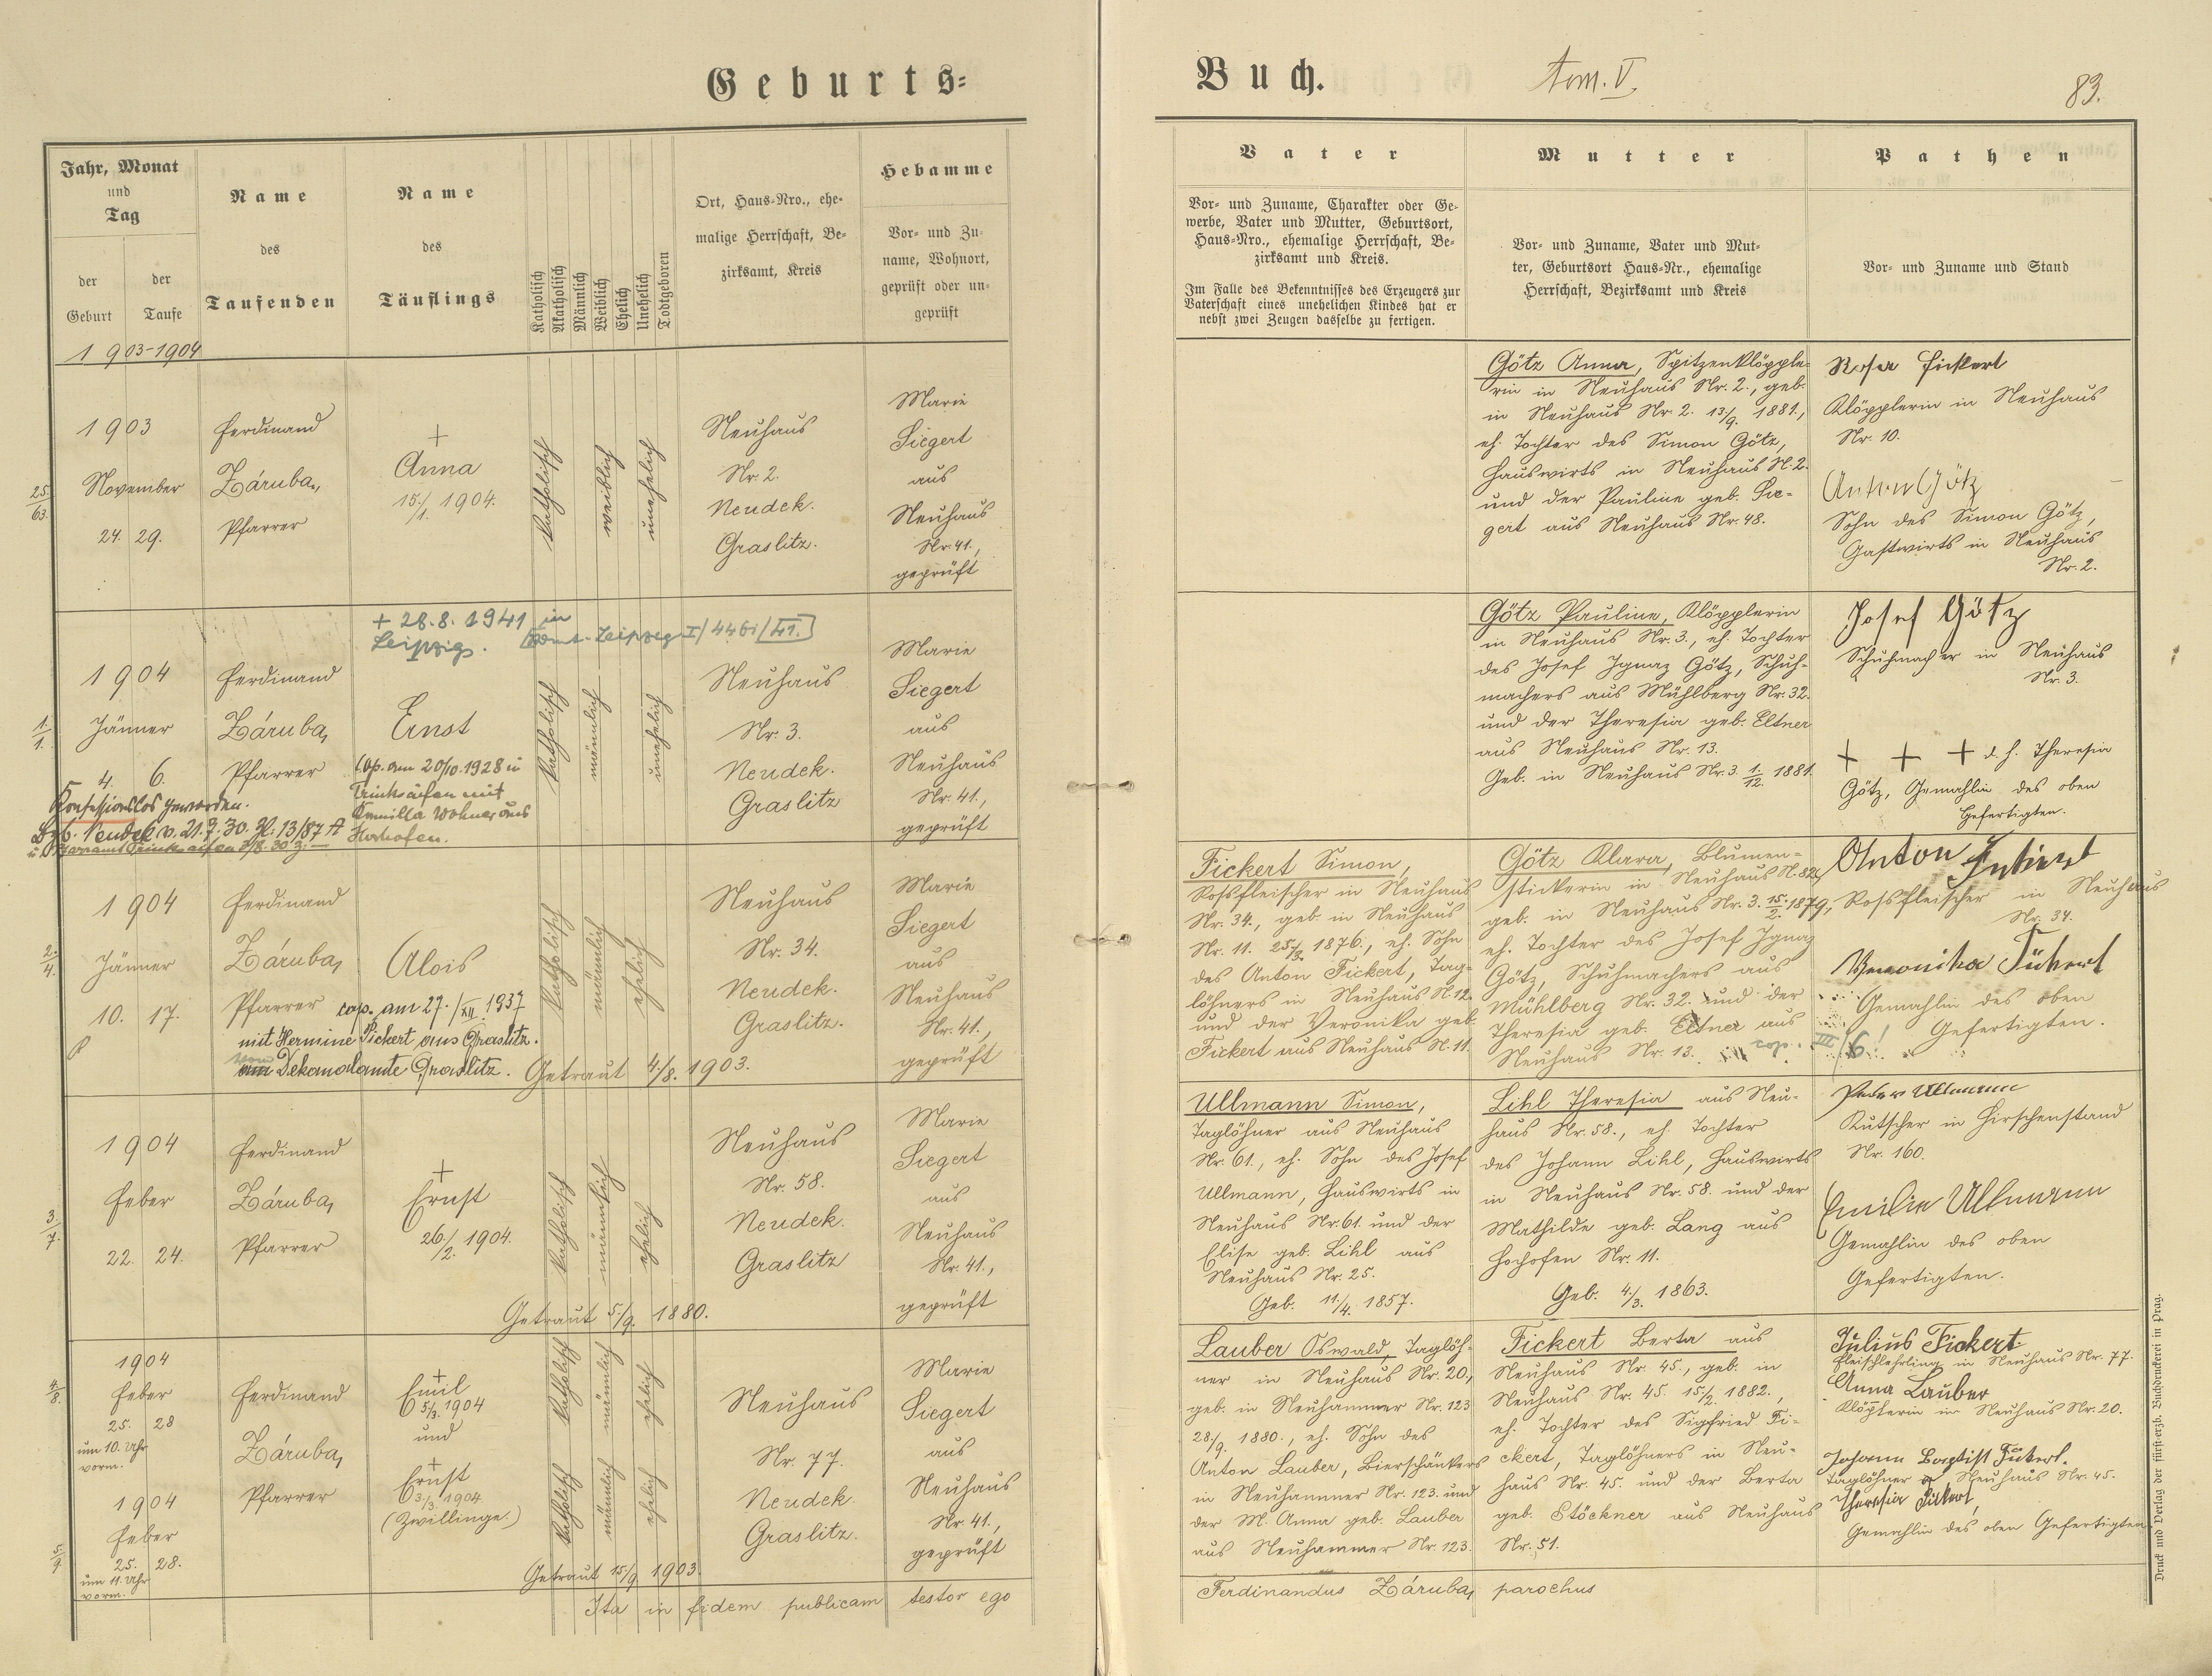 Geburts=
Jahr, Monat
und
Tag
der
Geburt
der
Taufe
Name
des
Taufenden
Name
des
Täuflings
Katholisch
Akatholisch
Männlich
Weiblich
Ehelich
Unehelich
Todtgeboren
Ort, Haus=Nro., ehe=
malige Herrschaft, Be=
zirksamt, Kreis
Hebamme
Vor= und Zu=
name, Wohnort,
geprüft oder un=
geprüft
1903-1904
25.
63.
1903
November
24. 29.
Ferdinand
Záruba,
Pfarrer
+
Anna
15./1. 1904.
katholisch
weiblich
unehelich
Neuhaus
Nr. 2.
Neudek.
Graslitz.
Marie
Siegert
aus
Neuhaus
Nr. 41,
geprüft
+ 28.8.1941 in
Leipzig.
1.
1.
1904
Jänner
4. 6.
Konfessionslos geworden.
Ferdinand
Záruba,
Pfarrer
Ernst
Cop. am 20/10.1928 in
Trinksaifen mit
Kamilla Wohner aus
Hochofen.
katholisch
männlich
unehelich
Neuhaus
Nr. 3.
Neudek.
Graslitz
Marie
Siegert
aus
Neuhaus
Nr. 41,
geprüft
2.
4.
1904
Jänner
10. 17.
Ferdinand
Záruba,
Pfarrer
Alois
cop. am 27./XII. 1937
mit Hermine Fickert aus Graslitz.
Dekanalamte Graslitz.
katholisch
männlich
ehelich
Getraut 4./8. 1903.
Neuhaus
Nr. 34.
Neudek.
Graslitz.
Marie
Siegert
aus
Neuhaus
Nr. 41,
geprüft
3.
7.
1904
Feber
22. 24.
Ferdinand
Záruba,
Pfarrer
+
Ernst
26./2. 1904.
katholisch
männlich
ehelich
Getraut 5./9. 1880.
Neuhaus
Nr. 58.
Neudek.
Graslitz
Marie
Siegert
aus
Neuhaus
Nr. 41,
geprüft
4.
8.
1904
Feber
25. 28
um 10. Uhr
vorm.
5.
9
1904
Feber
25. 28.
um 11. Uhr
vorm.
Ferdinand
Záruba,
Pfarrer
+
Emil
5/3. 1904
und
+
Ernst
3./3. 1904
(Zwillinge.)
katholisch
männlich
ehelich
katholisch
männlich
ehelich
Getraut 15/9. 1903.
Neuhaus
Nr. 77.
Neudek.
Graslitz.
Marie
Siegert
aus
Neuhaus
Nr. 41,
geprüft
Ita in fidem publicam testor ego
Buch.
tom. V.
83.
Vater
Vor= und Zuname, Charakter oder Ge=
werbe, Vater und Mutter, Geburtsort,
Haus=Nro., ehemalige Herrschaft, Be=
zirksamt und Kreis.
Im Falle des Bekenntnisses des Erzeugers zur
Vaterschaft eines unehelichen Kindes hat er
nebst zwei Zeugen dasselbe zu fertigen.
Mutter
Vor= und Zuname, Vater und Mut=
ter, Geburtsort Haus=Nr., ehemalige
Herrschaft, Bezirksamt und Kreis
Pathen
Vor= und Zuname und Stand
Götz Anna, Spitzenklöpple=
rin in Neuhaus Nr. 2., geb.
in Neuhaus Nr. 2. 13/9. 1881.,
eh. Tochter des Simon Götz,
Hauswirts in Neuhaus N. 2.
und der Pauline geb. Sie=
gert aus Neuhaus Nr. 48.
Rosa Fickert
Klöpplerin in Neuhaus
Nr. 10.
Anton Götz
Sohn des Simon Götz,
Gastwirts in Neuhaus
Nr. 2.
Götz Pauline, Klöpplerin
in Neuhaus Nr. 3., eh. Tochter
des Josef Ignaz Götz, Schuh=
machers aus Mühlberg Nr. 32.
und der Theresia geb. Eltner
aus Neuhaus Nr. 13.
Geb. in Neuhaus Nr. 3. 1./12. 1881.
Josef Götz
Schuhmacher in Neuhaus
Nr. 3.
+ + + d. h. Theresia
Götz, Gemahlin des oben
Gefertigten.
Fickert Simon,
Rossfleischer in Neuhaus
Nr. 34., geb. in Neuhaus
Nr. 11. 25/3. 1876., eh. Sohn
des Anton Fickert, Tag=
löhners in Neuhaus N. 12.
und der Veronika geb.
Fickert aus Neuhaus N. 11.
Götz Klara, Blumen=
stickerin in Neuhaus N. 82.,
geb. in Neuhaus Nr. 3. 15./2. 1879,
eh. Tochter des Josef Ignaz
Götz, Schuhmachers aus
Mühlberg Nr. 32. und der
Theresia geb. Eltner aus
Neuhaus Nr. 13.
Anton Fickert
Rossfleischer in Neuhaus
Nr. 34.
Veronika Fickert
Gemahlin des oben
Gefertigten.
Ullmann Simon,
Taglöhner aus Neuhaus
Nr. 61., eh. Sohn des Josef
Ullmann, Hauswirts in
Neuhaus Nr. 61. und der
Elise geb. Lihl aus
Neuhaus Nr. 25.
Geb. 11./4. 1857.
Lihl Theresia aus Neu=
haus Nr. 58., eh. Tochter
des Johann Lihl, Hauswirts
in Neuhaus Nr. 58. und der
Mathilde geb. Lang aus
Hochofen Nr. 11.
Geb. 4./3. 1863.
Peter Ullmann
Kutscher in Hirschenstand
Nr. 160.
Emilie Ullmann
Gemahlin des oben
Gefertigten.
Lauber Oswald, Taglöh=
ner in Neuhaus Nr. 20,
geb. in Neuhammer Nr. 123
28/9. 1880., eh. Sohn des
Anton Lauber, Bierschänkers
in Neuhammer Nr. 123. und
der M. Anna geb. Lauber
aus Neuhammer Nr. 123.
Fickert Berta aus
Neuhaus Nr. 45., geb. in
Neuhaus Nr. 45. 15/2. 1882.,
eh. Tochter des Sigfried Fi=
ckert, Taglöhners in Neu=
haus Nr. 45. und der Berta
geb. Stöckner aus Neuhaus
Nr. 51.
Julius Fickert
Fleischlehrling in Neuhaus Nr. 77.
Anna Lauber
Klöpplerin in Neuhaus Nr. 20.
Johann Baptist Fickert.
Taglöhner Neuhaus Nr. 45.
Theresia Fickert,
Gemahlin des oben Gefertigten
Ferdinandus Záruba, parochus
Druck und Verlag der fürst=erzb. Buchdruckerei in Prag.